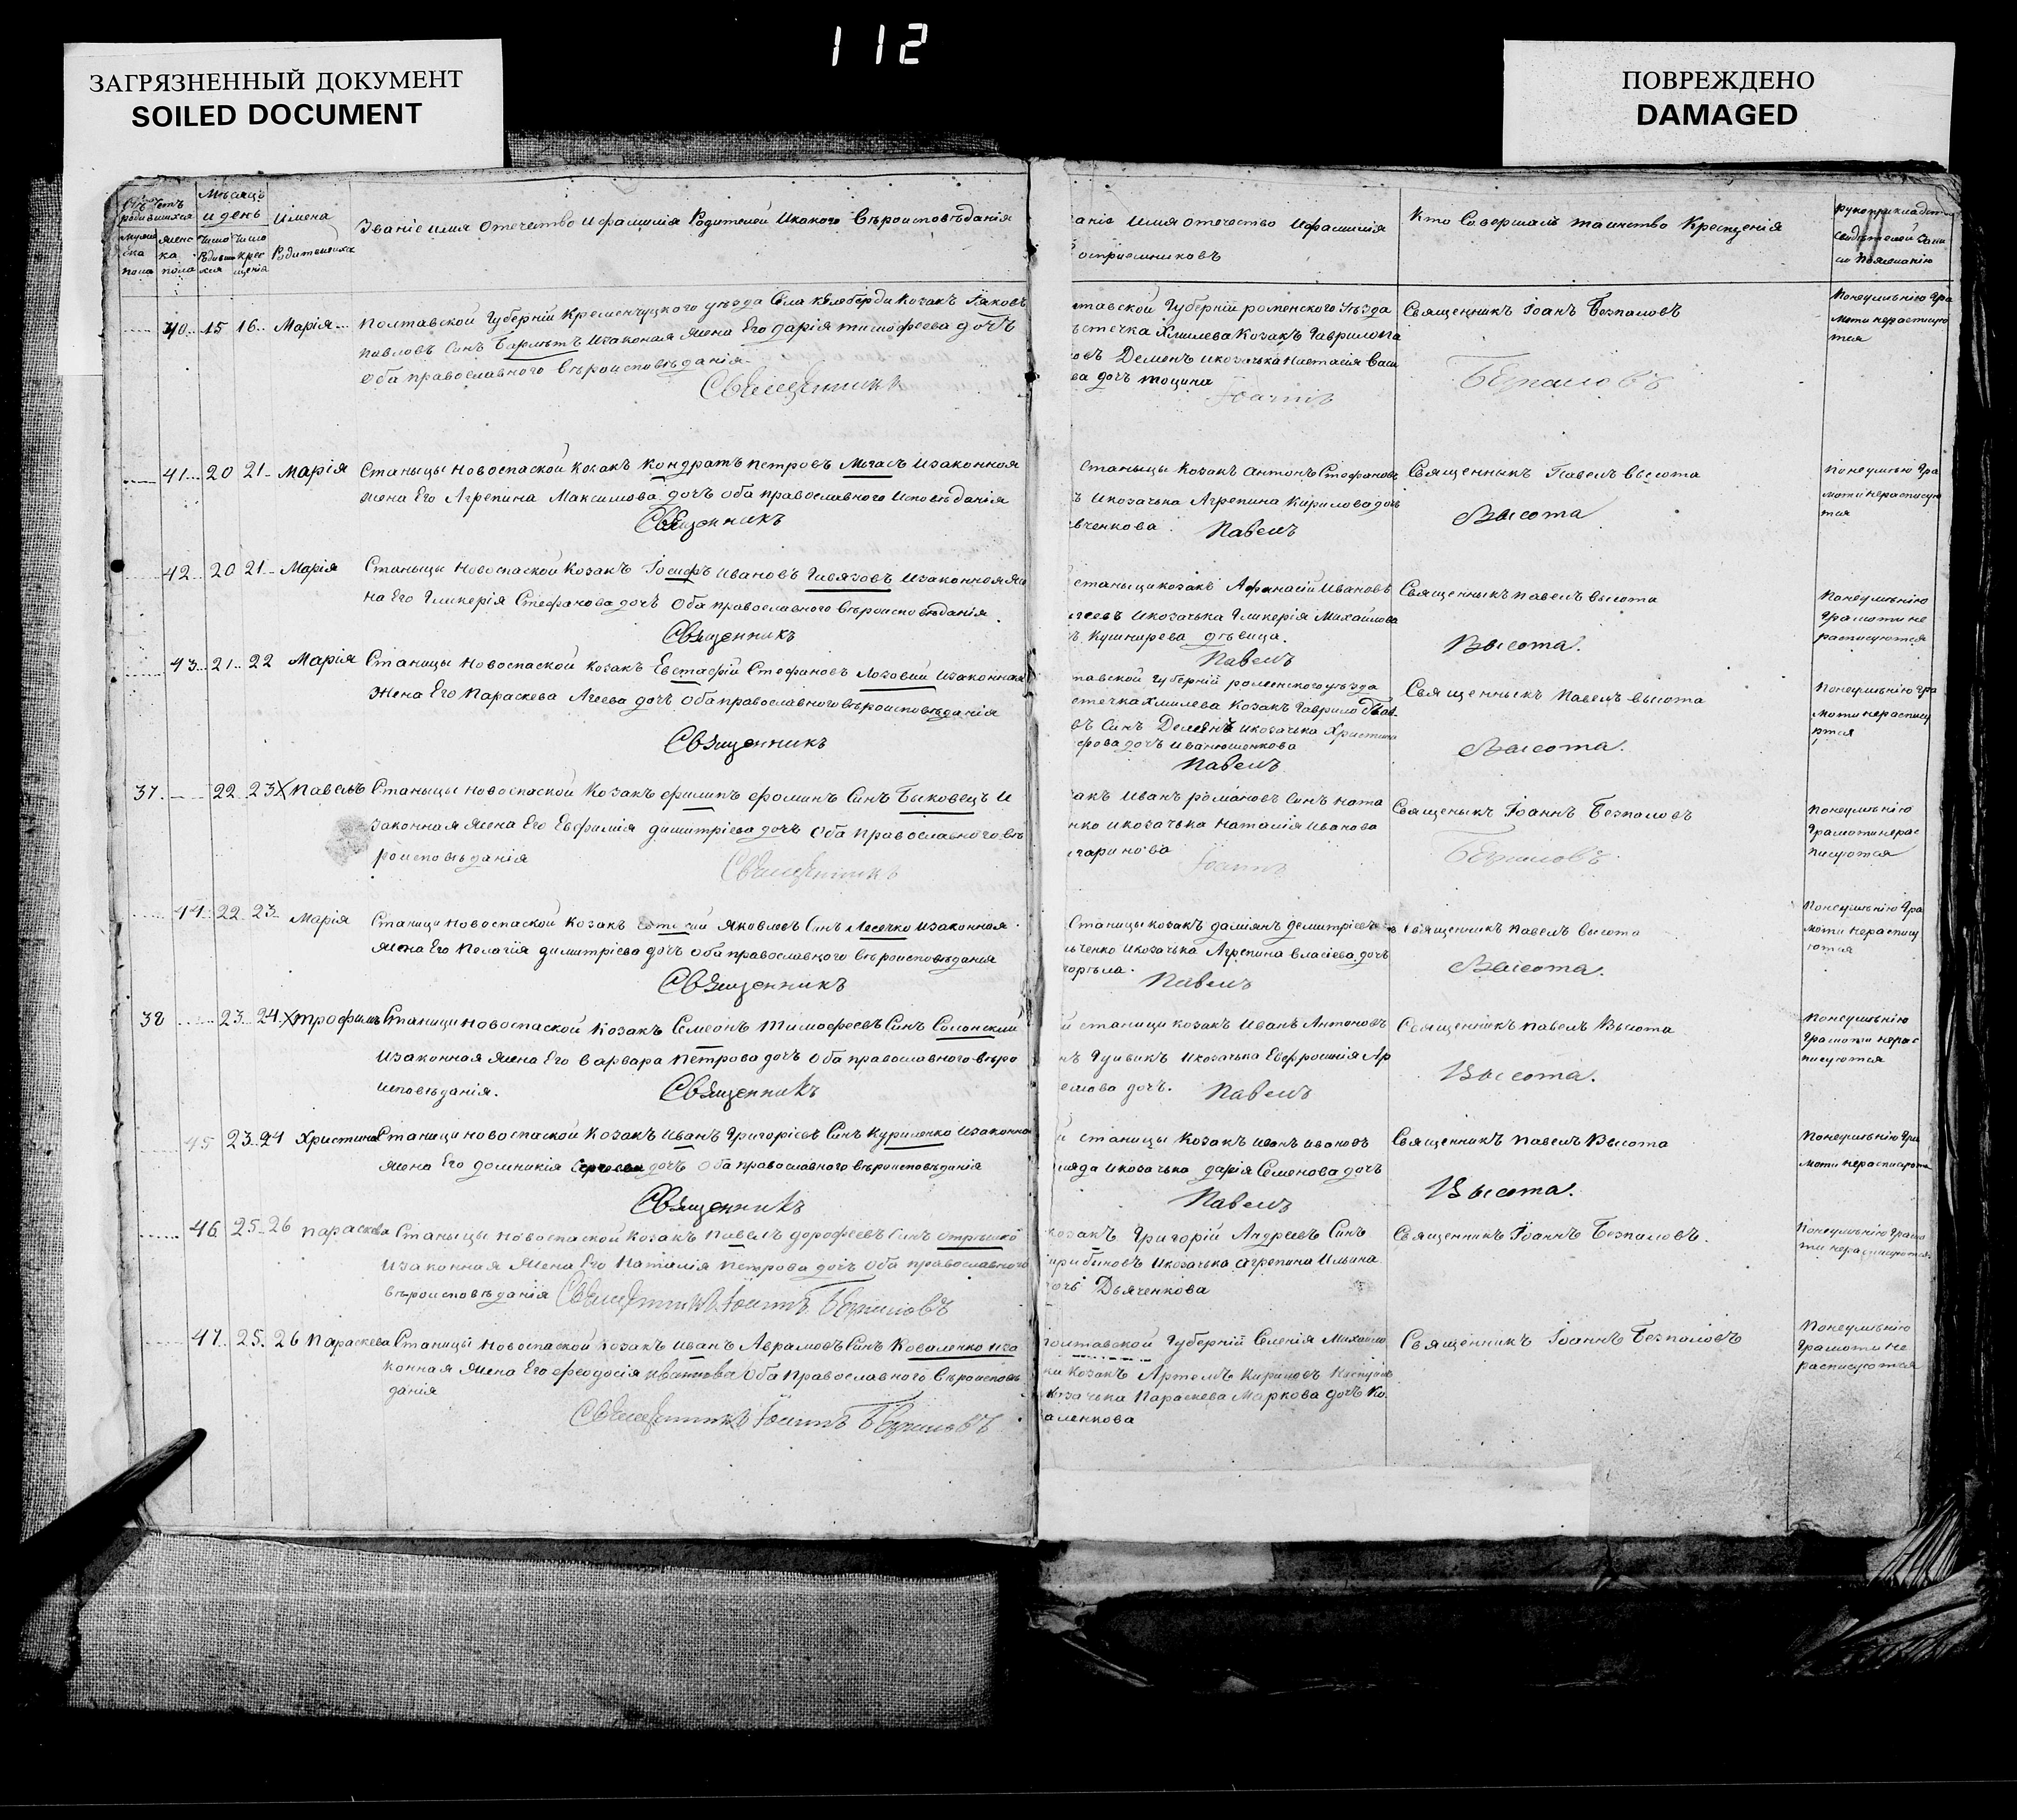 112
ЗАГРЯЗНЕННЫЙ ДОКУМЕНТ
SOILED DOCUMENT
ПОВРЕЖДЕНО
DAMAGED
родившихся
Мѣсяцъ
и день
Имена
Родившихся
Званіе имя отечество и фамилія Родителей и какого вѣроисповѣданія
женс
ка
пола
аніе имя отечество и фамилія
осприемниковъ
Кто Совершалъ таинство Крещенія
Рукоприкладство
свидѣтелей запи
си по желанію
40 15 16 Марія
Полтавской Губерніи Кременчуцкого уѣзда Села Келеберди Козакъ Іаковъ
Павловъ Синъ и законая жена Его Дарія Тимофеева дочъ
Оба православного вѣроисповѣданія
Священникъ
тавской Губерніи роменского уѣзда
стечка Хмилева Козакъ Гаврило Па
овъ Деменъ и козачька Настасія Васи
ва дочъ
Іоаннъ
Священникъ Іоанъ Безпаловъ
Безпаловъ
Понеумѣнію гра
моти нерасписую
тся
41 20 21 Марія
Станыцы Новоспаской козакъ Кондратъ Петровъ и законная
жена Его Агрепина Максимова дочъ оба православного исповѣданія
Священникъ
Станыцы Козакъ Антонъ Стефановъ
ъ и козачька Агрепина Кирилова дочъ
вченкова
Павелъ
Священныкъ Павелъ Высота
Высота
Понеумѣнію гра
моти нерасписую
тся
42 20 21 Марія
Станыцы Новоспаской Козакъ Іосифъ Ивановъ и законная же
на Его Гликерія Стефанова дочъ Оба православного вѣроисповѣданія.
Священникъ
станыци козакъ Афанасий Ивановъ
геевъ и козачька Гликерія Михайлова
ъ Кушнирева дѣвица.
Павелъ
Священныкъ павелъ Высота
Высота.
Понеумѣнію
Грамоти не
расписуются
43 21 22 Марія
Станицы Новоспаской козакъ Евстафій Стефановъ Лозовий и законная
жена Его Параскева Агеева дочъ Оба православного вѣроисповѣданія
Священникъ
тавской Губерніи роменского уѣзда
стечка Хмилева козакъ Гаврило Пав
въ Синъ Деменъ и козачька Христина
фрова дочъ Иванюшенкова
Павелъ
Священныкъ Павелъ Высота
Высота.
Понеумѣнію гра
моти нераспису
ются
37 22 23 Х Павелъ
Станыцы Новоспаской Козакъ филипъ фоминъ Синъ Быковецъ и
законная жена Его Евфимія Димитріева дочъ Оба православного вѣ
роисповѣданія
Священникъ
закъ Иванъ романовъ Синъ
нко и козачька Наталія Иванова
гаринова
Іоаннъ
Священыкъ Іоаннъ Безпаловъ
Безпаловъ
понеумѣнію
Грамоти нерас
писуются
44 22 23 Марія
Станици Новоспаской козакъ Яковлевъ Синъ Лесечко и законная
жена Его Пелагія димитріева дочъ оба православного вѣроисповѣданія
Священникъ
Станицы козакъ даміянъ демитріевъ
ьченко и козачька Агрепина Власіева дочъ
Павелъ
Священникъ павелъ Высота
Высота.
Понеумѣнію Гра
моти нераспису
ются
38 23 24 Х Трофимъ
Станици Новоспаской Козакъ Семеонъ Тимофеевъ Синъ Солонский
и законная жена Его Варвара Петрова дочъ Оба православного вѣро
исповѣданія.
Священникъ
й станици козакъ Иванъ Антоновъ
нъ и козачька Евфросинія Ар
емова дочъ.
Павелъ
Священникъ павелъ Высота
Высота.
Понеумѣнію
Грамоти нерас
писуются
45 23 24 Христина
Станици новоспаской Козакъ Иванъ Григоріевъ Синъ Куриленко и законна
жена Его домникія Сергеева дочъ Оба православного вѣроисповѣданія
Священникъ
й станицы Козакъ иванъ ивановъ
и козачька дарія Семенова дочъ
Павелъ
Священникъ павелъ Высота
Высота.
Понеумѣнію Гра
моти нерасписуются
46 25 26 параскева
Станыцы Новоспаской Козакъ Павелъ дорофеевъ Синъ отрѣшко
и законная жена Его Наталія Петрова дочъ Оба православного
вѣроисповѣданія Священникъ Іоаннъ Безпаловъ
козакъ Григорій Андреевъ Синъ
и козачька агрепина Ильина
очъ Дьяченкова
Священникъ Іоаннъ Безпаловъ.
Понеумѣнію Грамо
ти нерасписуются
47 25 26 Параскева
Станицы Новоспаской козакъ Иванъ Аврамовъ Синъ Коваленко и за
конная жена Его феодосія Иванова Оба Православного вѣроисповѣ
данія
Священникъ Іоаннъ Безпаловъ
Полтавской Губерніи Селенія Михайло
ки Козакъ Артемъ Кириловъ
козачька Параскева Маркова дочъ Ко
аленкова
Священникъ Іоаннъ Безпаловъ
Понеумѣнію
Грамоти не
расписуются